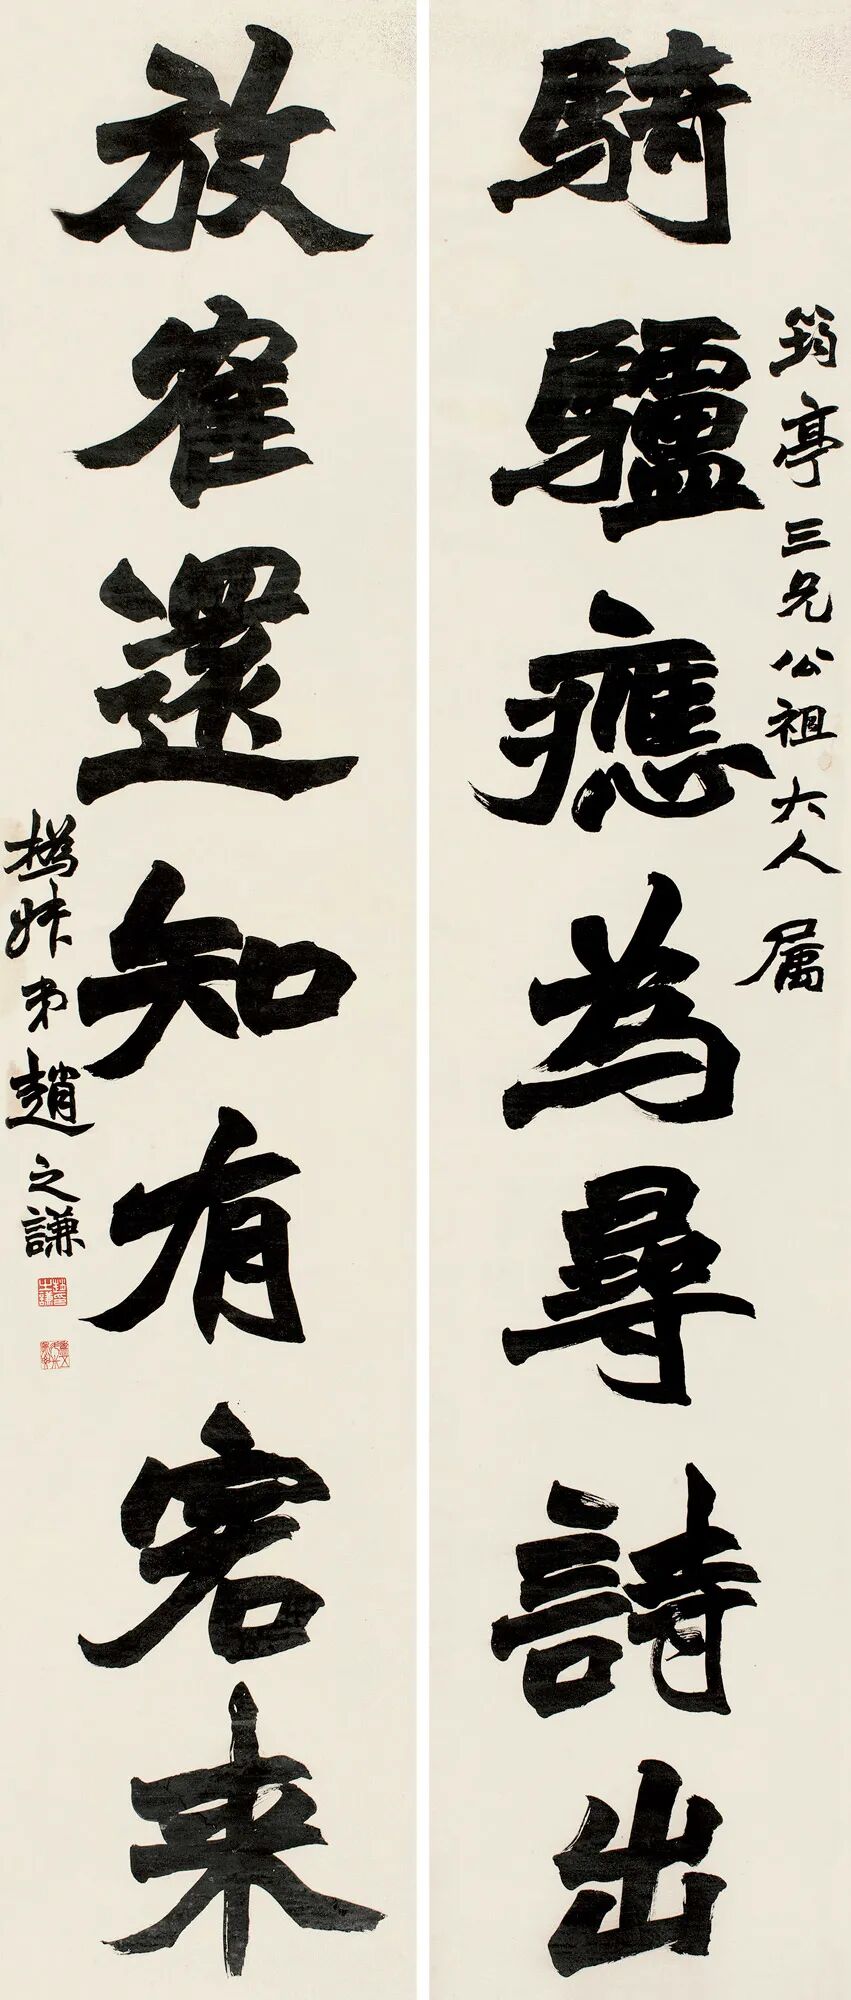 筠亭三兄公祖大人属
騎驢應為尋詩出
放寉還知有客來
撝叔弟趙之謙